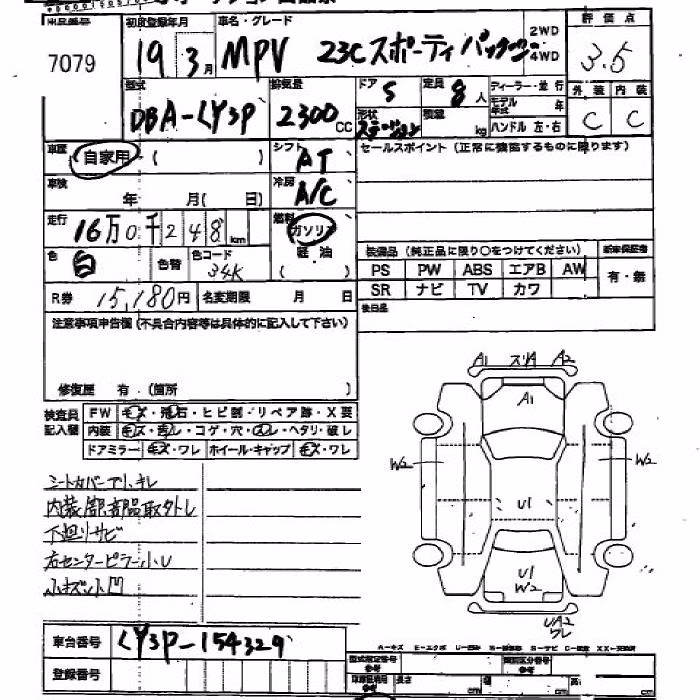 出品番号 初度登録年月 車名・グレード 評価点
7079 19 3月 MPV 23Cスポーティパッケージ 2WD 4WD 3.5
型式 排気量 ドア 5 定員 8人 ディーラー・並行 外装 内装
DBA-LY3P 2300CC 形状 ステーション 積載 kg モデル年式 年 C C
ハンドル 左・右
車歴 自家用 ( ) シフト AT セールスポイント(正常に機能するものに限ります)
車検 年 月( 日) 冷房 A/C
走行 16万0千248km 燃料 ガソリン
色 白 色替 色コード 34K 軽油 ( ) 装備品(純正品に限り○をつけてください) 新車保証書
PS PW ABS エアB AW 有・無
R券 15,180円 名変期限 月 日 SR ナビ TV カワ
後日品
注意事項申告欄(不具合内容等は具体的に記入して下さい)
修復歴 有・(箇所 )
検査員記入欄 FW キズ・飛石・ヒビ割・リペア跡・X要
内装 キズ・汚レ・コゲ・穴・スレ・ヘタリ・破レ
ドアミラー キズ・ワレ ホイール・キャップ キズ・ワレ
シートカバー
内装部品取外し
下廻りサビ
右センターピラー小U
小キズ小凹
A1 スリA A2
A1
W2 W2
U1
U1
W2
UA2
ワレ
A-キズ E-エクボ U-凹 S-サビ C-腐食 XX-交換済
車台番号 LY3P-154329
登録番号
型式指定番号 参考 類別区分番号 参考
車庫証明用 参考 長さ cm 幅 cm 高 cm